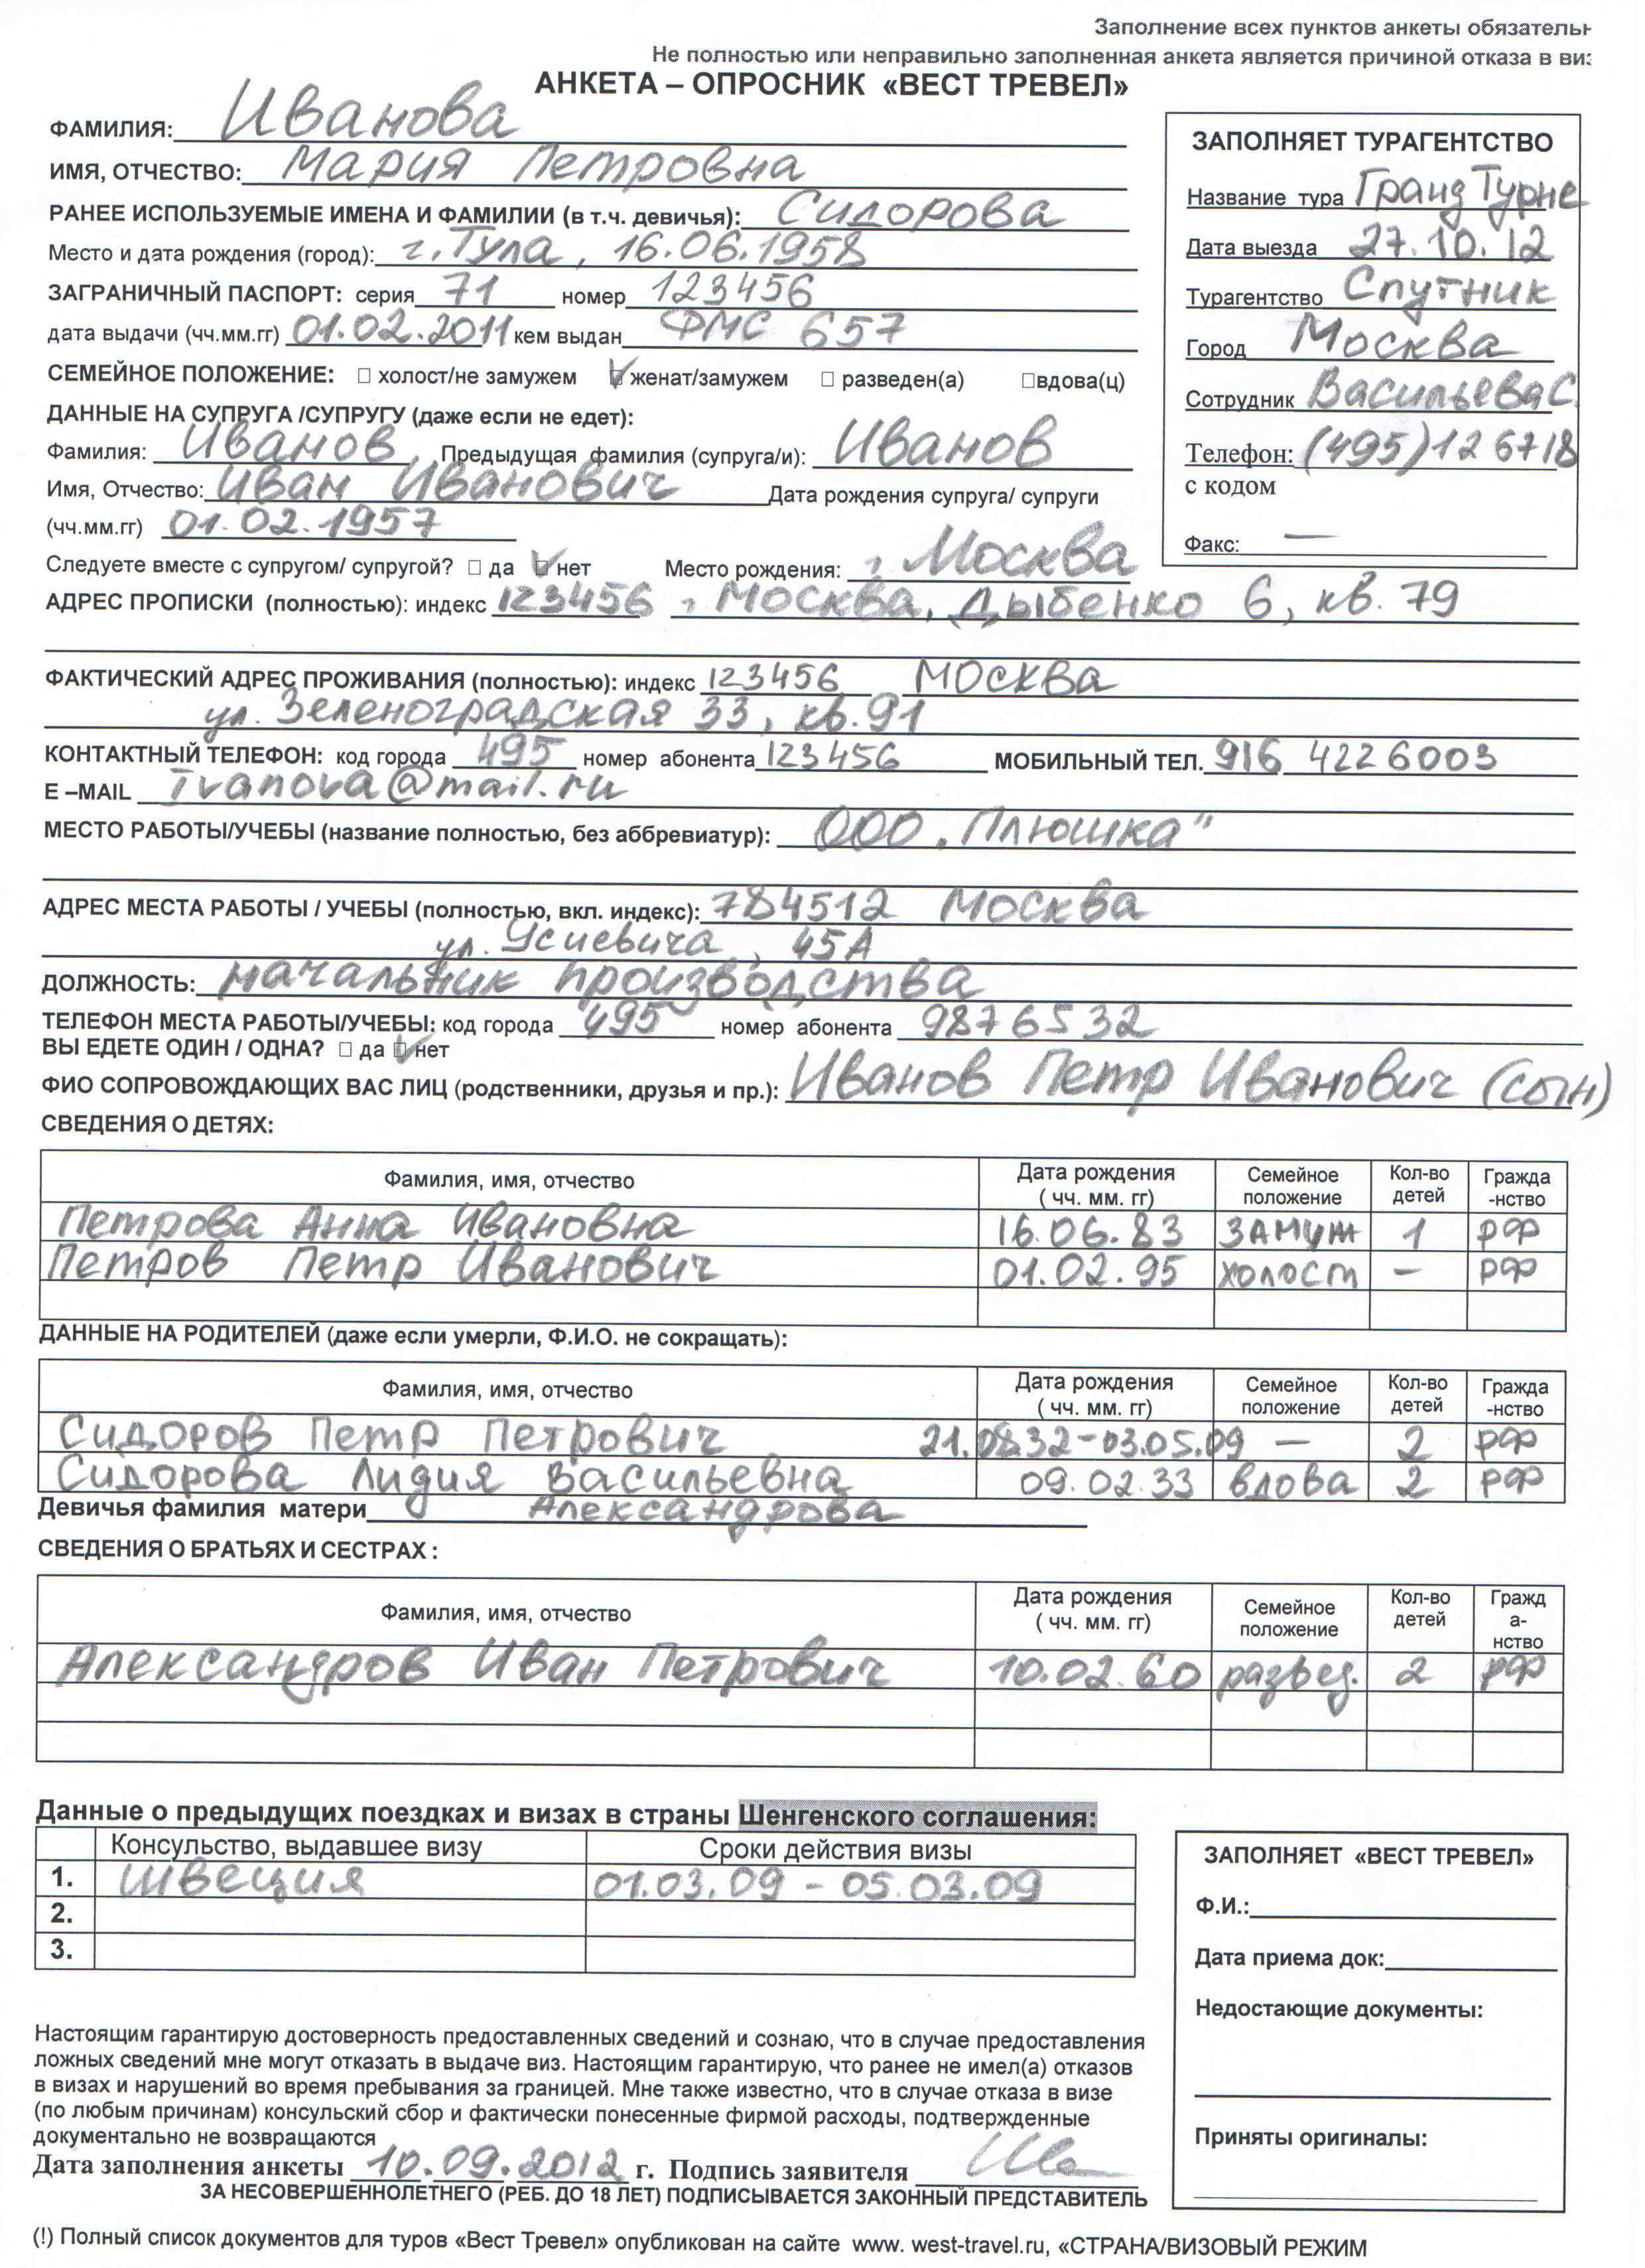 Заполнение всех пунктов анкеты обязательн
Не полностью или неправильно заполненная анкета является причиной отказа в виз
АНКЕТА – ОПРОСНИК «ВЕСТ ТРЕВЕЛ»
ФАМИЛИЯ: Иванова
ИМЯ, ОТЧЕСТВО: Мария Петровна
РАНЕЕ ИСПОЛЬЗУЕМЫЕ ИМЕНА И ФАМИЛИИ (в т.ч. девичья): Сидорова
Место и дата рождения (город): г. Тула, 16.06.1958
ЗАГРАНИЧНЫЙ ПАСПОРТ: серия 71 номер 123456
дата выдачи (чч.мм.гг) 01.02.2011 кем выдан ФМС 657
СЕМЕЙНОЕ ПОЛОЖЕНИЕ: □ холост/не замужем ☑ женат/замужем □ разведен(а) □вдова(ц)
ДАННЫЕ НА СУПРУГА /СУПРУГУ (даже если не едет):
Фамилия: Иванов Предыдущая фамилия (супруга/и): Иванов
Имя, Отчество: Иван Иванович Дата рождения супруга/ супруги
(чч.мм.гг) 01.02.1957
Следуете вместе с супругом/ супругой? □ да ☑ нет Место рождения: г. Москва
ЗАПОЛНЯЕТ ТУРАГЕНТСТВО
Название тура Гранд Турне
Дата выезда 27.10.12
Турагентство Спутник
Город Москва
Сотрудник Васильева С.
Телефон: (495)12 67 18
с кодом
Факс: —
АДРЕС ПРОПИСКИ (полностью): индекс 123456 г. Москва, Дыбенко 6, кв. 79
ФАКТИЧЕСКИЙ АДРЕС ПРОЖИВАНИЯ (полностью): индекс 123456 Москва
ул. Зеленоградская 33, кв. 91
КОНТАКТНЫЙ ТЕЛЕФОН: код города 495 номер абонента 123456 МОБИЛЬНЫЙ ТЕЛ. 916 4226003
E –MAIL Ivanova@mail.ru
МЕСТО РАБОТЫ/УЧЕБЫ (название полностью, без аббревиатур): ООО „Плюшка"
АДРЕС МЕСТА РАБОТЫ / УЧЕБЫ (полностью, вкл. индекс): 784512 Москва
ул. Усиевича, 45А
ДОЛЖНОСТЬ: начальник производства
ТЕЛЕФОН МЕСТА РАБОТЫ/УЧЕБЫ: код города 495 номер абонента 9876532
ВЫ ЕДЕТЕ ОДИН / ОДНА? □ да ☑ нет
ФИО СОПРОВОЖДАЮЩИХ ВАС ЛИЦ (родственники, друзья и пр.): Иванов Петр Иванович (сын)
СВЕДЕНИЯ О ДЕТЯХ:
Фамилия, имя, отчество Дата рождения ( чч. мм. гг) Семейное положение Кол-во детей Гражда -нство
Петрова Анна Ивановна 16.06.83 замуж 1 РФ
Петров Петр Иванович 01.02.95 холост – РФ
ДАННЫЕ НА РОДИТЕЛЕЙ (даже если умерли, Ф.И.О. не сокращать):
Фамилия, имя, отчество Дата рождения ( чч. мм. гг) Семейное положение Кол-во детей Гражда -нство
Сидоров Петр Петрович 21.08.32-03.05.09 — 2 РФ
Сидорова Лидия Васильевна 09.02.33 вдова 2 РФ
Девичья фамилия матери Александрова
СВЕДЕНИЯ О БРАТЬЯХ И СЕСТРАХ :
Фамилия, имя, отчество Дата рождения ( чч. мм. гг) Семейное положение Кол-во детей Гражд а- нство
Александров Иван Петрович 10.02.60 развед. 2 РФ
Данные о предыдущих поездках и визах в страны Шенгенского соглашения:
Консульство, выдавшее визу Сроки действия визы
1. Швеция 01.03.09 - 05.03.09
2.
3.
ЗАПОЛНЯЕТ «ВЕСТ ТРЕВЕЛ»
Ф.И.:
Дата приема док:
Недостающие документы:
Приняты оригиналы:
Настоящим гарантирую достоверность предоставленных сведений и сознаю, что в случае предоставления
ложных сведений мне могут отказать в выдаче виз. Настоящим гарантирую, что ранее не имел(а) отказов
в визах и нарушений во время пребывания за границей. Мне также известно, что в случае отказа в визе
(по любым причинам) консульский сбор и фактически понесенные фирмой расходы, подтвержденные
документально не возвращаются
Дата заполнения анкеты 10.09.2012 г. Подпись заявителя
ЗА НЕСОВЕРШЕННОЛЕТНЕГО (РЕБ. ДО 18 ЛЕТ) ПОДПИСЫВАЕТСЯ ЗАКОННЫЙ ПРЕДСТАВИТЕЛЬ
(!) Полный список документов для туров «Вест Тревел» опубликован на сайте www. west-travel.ru, «СТРАНА/ВИЗОВЫЙ РЕЖИМ